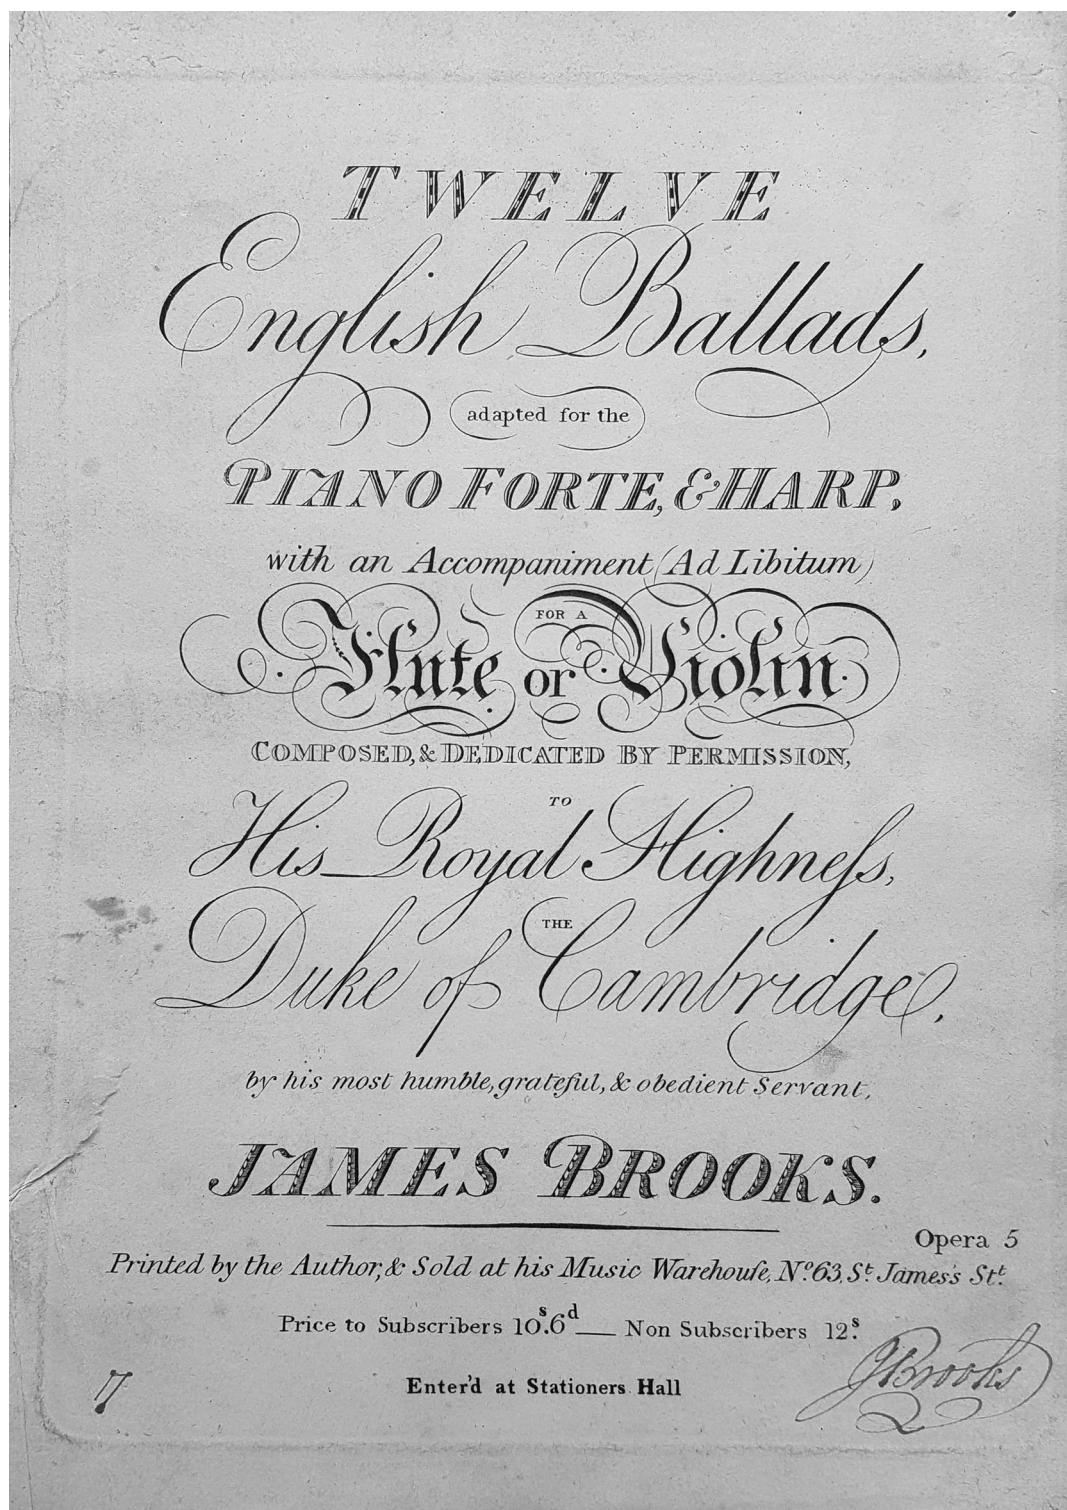 TWELVE
English Ballads,
adapted for the
PIANO FORTE, & HARP,
with an Accompaniment (Ad Libitum)
FOR A
Flute or Violin.
COMPOSED, & DEDICATED BY PERMISSION,
TO
His Royal Highneſs,
THE
Duke of Cambridge,
by his most humble, grateful, & obedient Servant,
JAMES BROOKS.
Opera 5
Printed by the Author, & Sold at his Music Warehouſe, No. 63, St. James's Stt.
Price to Subscribers 10s.6d — Non Subscribers 12s.
JBrooks
Enter'd at Stationers Hall